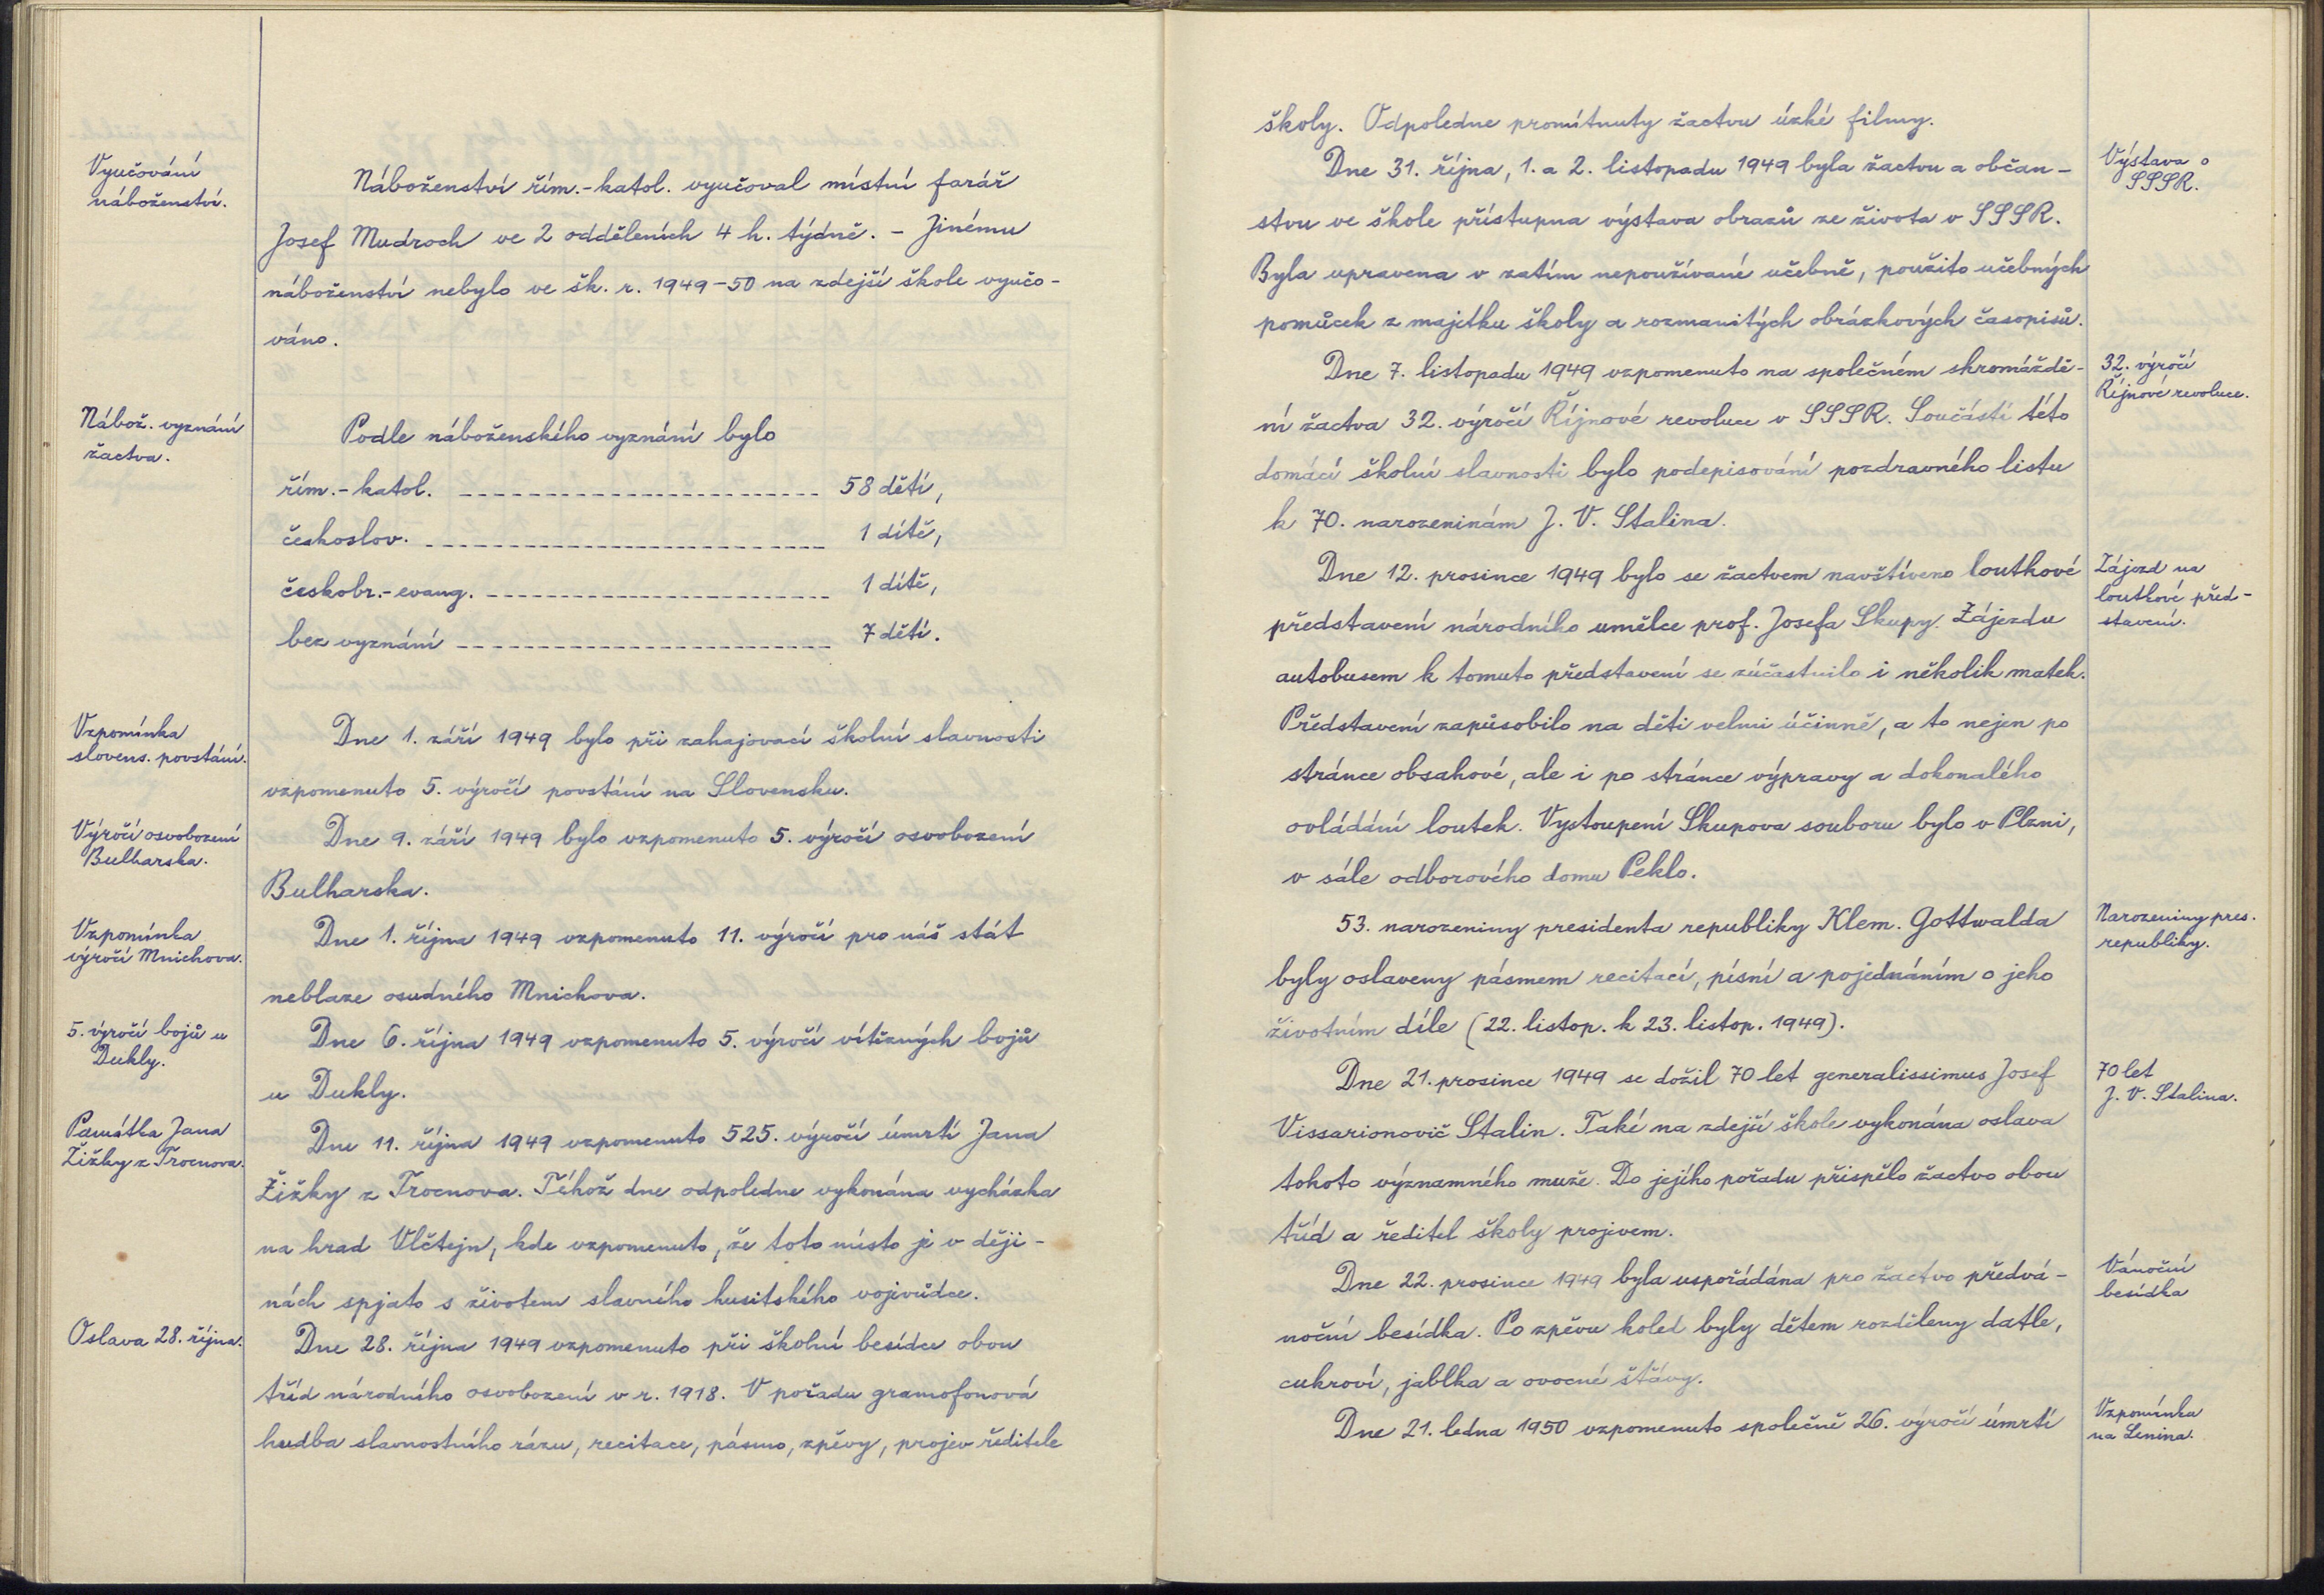 Vyučování
náboženství.
Náboženství řím.-katol. vyučoval místní farář
Josef Mudroch ve 2 odděleních 4 h. týdně. - Jinému
náboženství nebylo ve šk. r. 1949-50 na zdejší škole vyučo-
váno.
Nábož. vyznání
žactva.
Podle náboženského vyznání bylo
řím.-katol. ---------- 58 dětí,
českoslov. ---------- 1 dítě,
českobr.-evang. ---------- 1 dítě,
bez vyznání ---------- 7 dětí.
Vzpomínka
slovens. povstání.
Dne 1. září 1949 bylo při zahajovací školní slavnosti
vzpomenuto 5. výročí povstání na Slovensku.
Výročí osvobození
Bulharska.
Dne 9. září 1949 bylo vzpomenuto 5. výročí osvobození
Bulharska.
Vzpomínka
výročí Mnichova.
Dne 1. října 1949 vzpomenuto 11. výročí pro náš stát
neblaze osudného Mnichova.
5. výročí bojů u
Dukly.
Dne 6. října 1949 vzpomenuto 5. výročí vítězných bojů
u Dukly.
Památka Jana
Žižky z Trocnova.
Dne 11. října 1949 vzpomenuto 525. výročí úmrtí Jana
Žižky z Trocnova. Téhož dne odpoledne vykonána vycházka
na hrad Vlčtejn, kde vzpomenuto, že toto místo je v ději-
nách spjato s životem slavného husitského vojevůdce.
Oslava 28. října.
Dne 28. října 1949 vzpomenuto při školní besídce obou
tříd národního osvobození v r. 1918. V pořadu gramofonová
hudba slavnostního rázu, recitace, pásmo, zpěvy, projev ředitele
školy. Odpoledne promítnuty žactvu úzké filmy.
Dne 31. října, 1. a 2. listopadu 1949 byla žactvu a občan-
stvu ve škole přístupna výstava obrazů ze života v SSSR.
Byla upravena v zatím nepoužívané učebně, použito učebných
pomůcek z majetku školy a rozmanitých obrázkových časopisů.
Výstava o
SSSR.
Dne 7. listopadu 1949 vzpomenuto na společném shromáždě-
ní žactva 32. výročí Říjnové revoluce v SSSR. Součástí této
domácí školní slavnosti bylo podepisování pozdravného listu
k 70. narozeninám J. V. Stalina.
32. výročí
Říjnové revoluce.
Dne 12. prosince 1949 bylo se žactvem navštíveno loutkové
představení národního umělce prof. Josefa Skupy. Zájezdu
autobusem k tomuto představení se zúčastnilo i několik matek.
Představení zapůsobilo na děti velmi účinně, a to nejen po
stránce obsahové, ale i po stránce výpravy a dokonalého
ovládání loutek. Vystoupení Skupova souboru bylo v Plzni,
v sále odborového domu Peklo.
Zájezd na
loutkové před-
stavení.
53. narozeniny presidenta republiky Klem. Gottwalda
byly oslaveny pásmem recitací, písní a pojednáním o jeho
životním díle (22. listop. k 23. listop. 1949).
Narozeniny pres.
republiky.
Dne 21. prosince 1949 se dožil 70 let generalissimus Josef
Vissarionovič Stalin. Také na zdejší škole vykonána oslava
tohoto významného muže. Do jejího pořadu přispělo žactvo obou
tříd a ředitel školy projevem.
70 let
J. V. Stalina.
Dne 22. prosince 1949 byla uspořádána pro žactvo předvá-
noční besídka. Po zpěvu koled byly dětem rozděleny datle,
cukroví, jablka a ovocné šťávy.
Vánoční
besídka
Dne 21. ledna 1950 vzpomenuto společně 26. výročí úmrtí
Vzpomínka
na Lenina.